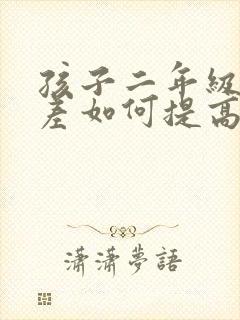 孩子二年级
差如何提高
潇潇夢語